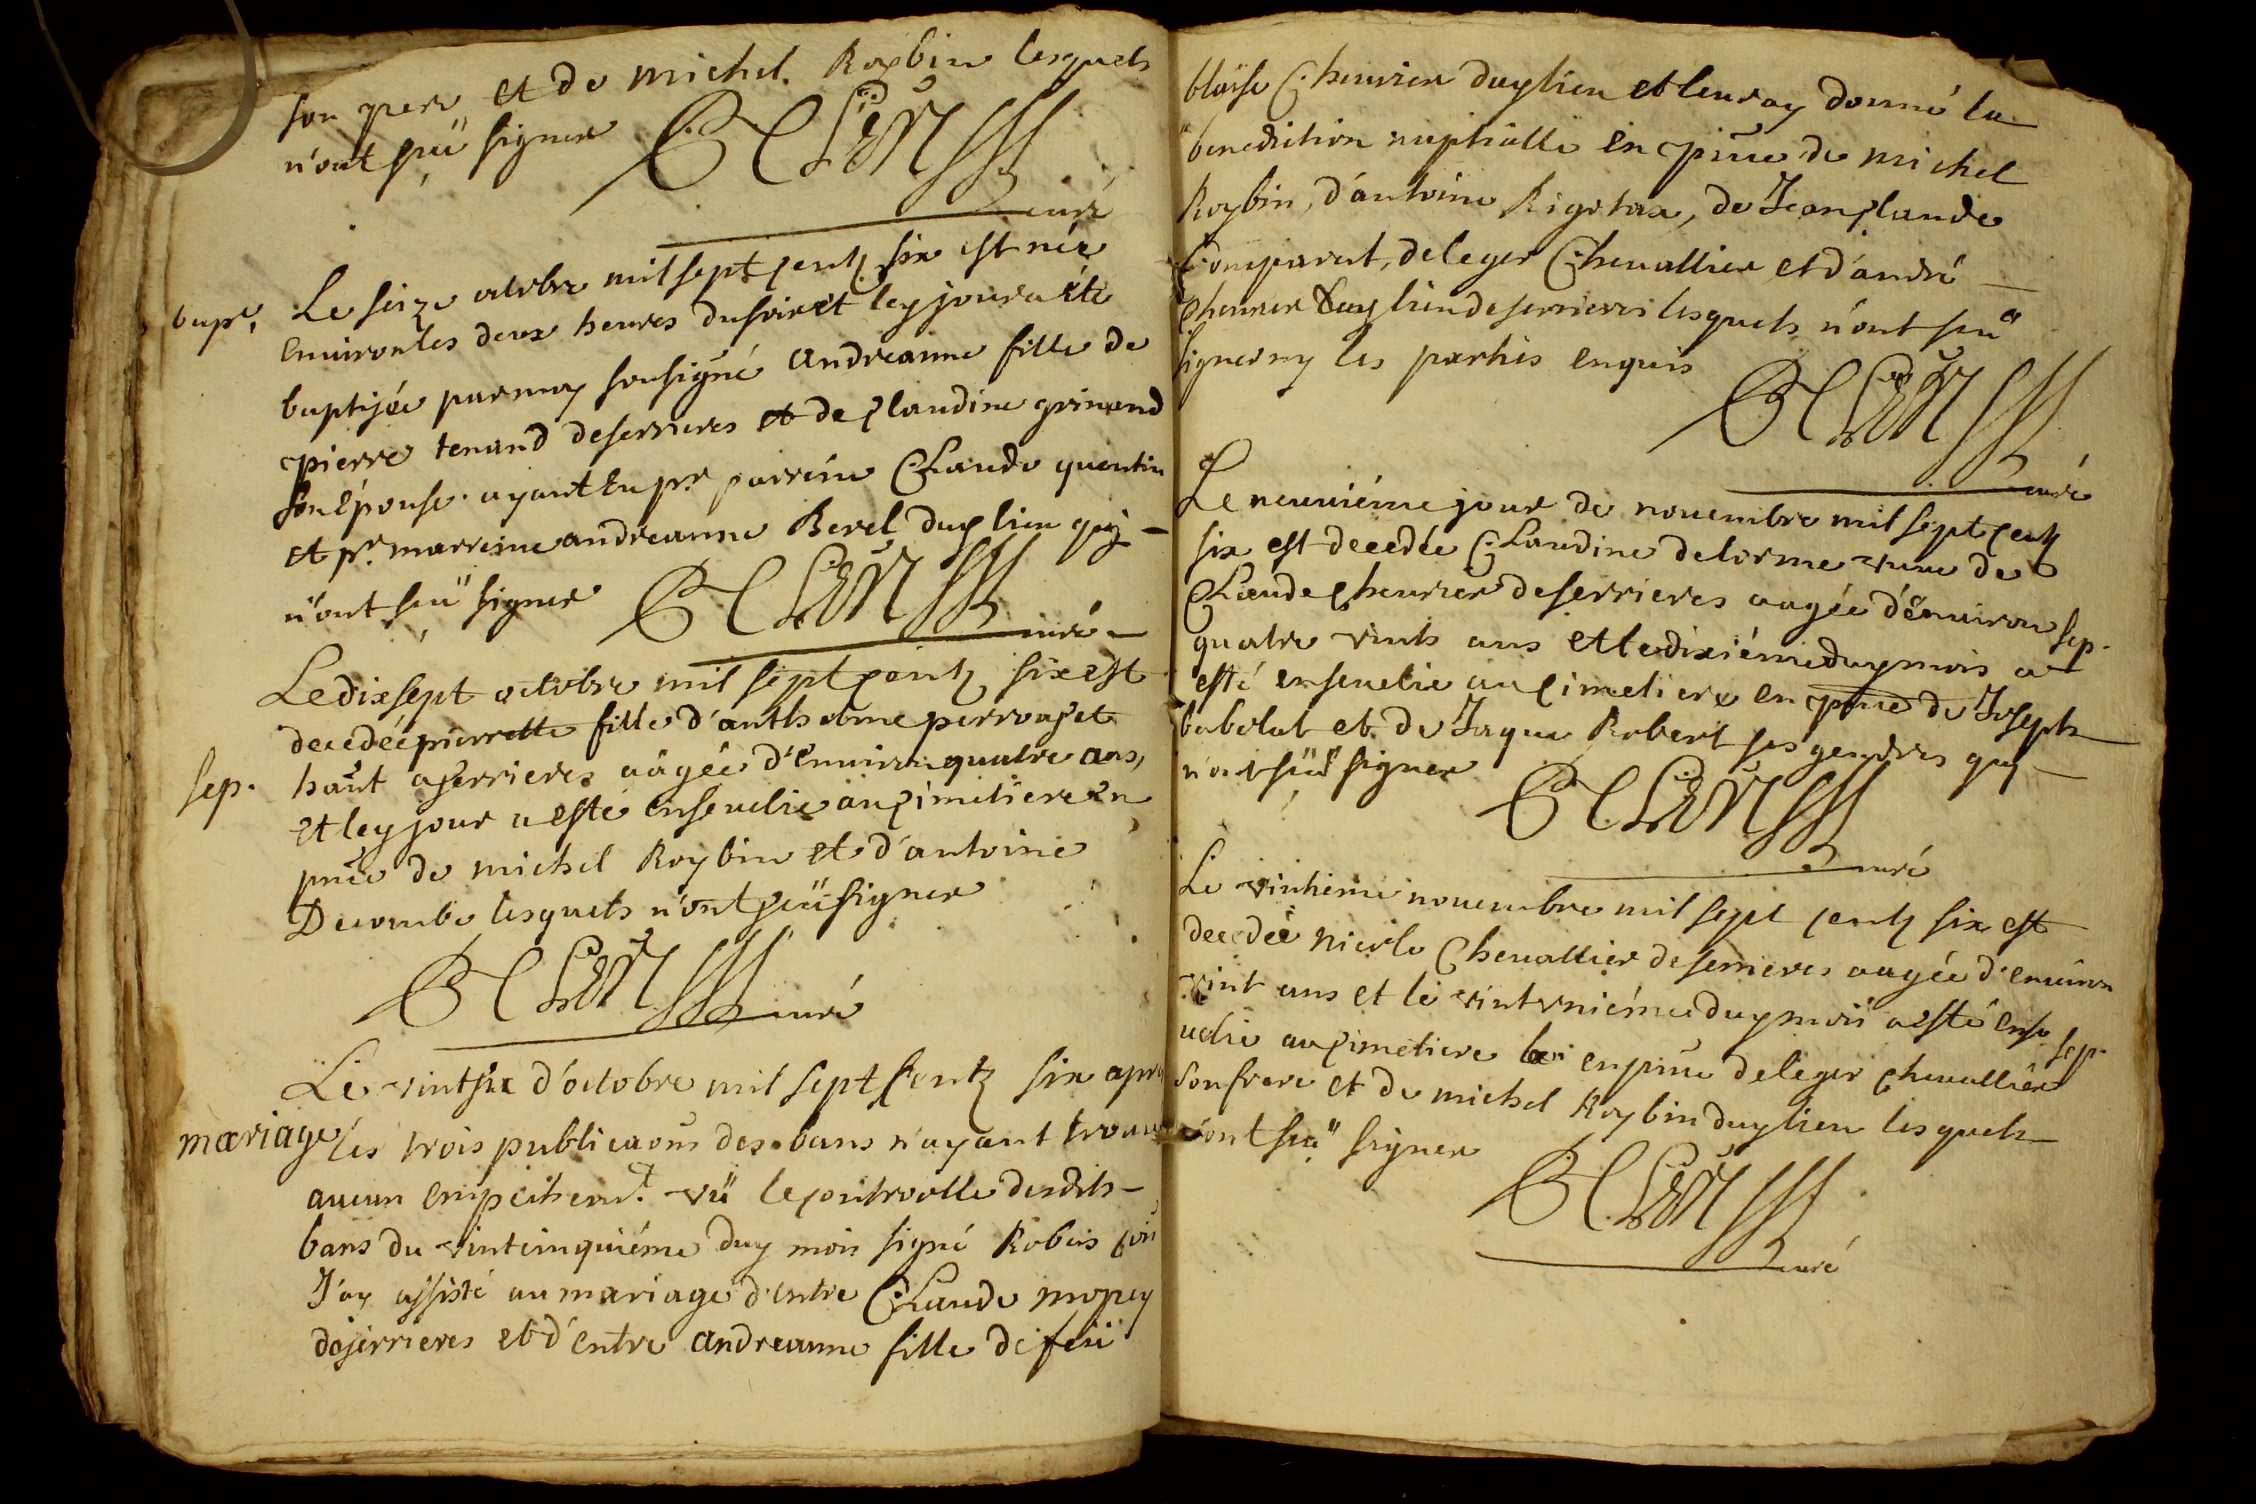 son pere et de michel Roybin lesquels
n'ont sçeü signer
curé
bapt. Le seize octobre mil sept centz six est née
environ les deux heures du soir et led jour a été
baptisée par moy soubsigné andreanne fille de
pierre tenand deserrieres et de claudine grinand
son épouse ayant eu pr parrein Claude quentin
et pr marreine andreanne Berel dud lieu quy
n'ont sceü signer
curé
Le dix sept octobre mil sept centz six est
decedée pierrette fille d'anthelme perrouset
sep. hant aserrieres aagée d'environ quatre ans,
et led jour a esté ensevelie au cimetiere en
pnce de michel Roybin et d'antoine
Decombe lesquels n'ont sceü signer
curé
Le vint six d'octobre mil sept centz six apres
mariage les trois publicaons des bans n'ayant trouvé
aucun empeichemt vü le controolle desdits
bans du vintcinquiéme dud mois signé Robins
J'ay assisté au mariage d'entre Claude mopey
deserrieres et d'entre andreanne fille de feü
blaise Chevrier dud lieu et leur ay donné la
benediction nuptialle en pnce de michel
Roybin, d'antoine Rigotax, de Jean claude
Comparet, de leger Chevallier et d'andré
chevrier dud lieu deserrieres lesquels n'ont sceu
signer ny les parties enquis
curé
Le neuviéme jour de novembre mil sept centz
six est decedée Claudine delorme veuve de
Claude chevrier deserrieres aagée d'environ sep.
quatre vints ans et le dixiéme dud mois a
esté ensevelie au cimetiere en pnce de Joseph
babolat et de Jaque Robert ses gendres quy
n'ont sceü signer
curé
Le vintiéme novembre mil sept centz six est
decedée nicole Chevallier deserrieres aagée d'environ
vint ans et le vintvniéme dud mois a esté ense
velie au cimetiere en pnce de leger chevallier sep.
son frere et de michel Roybin dud lieu lesquels
n'ont sceü signer
curé